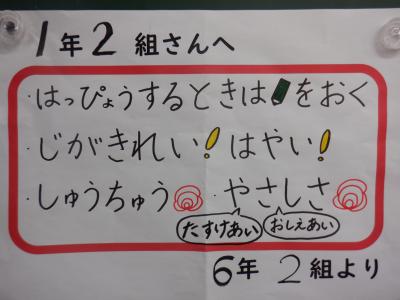 1年2組さんへ
・はっぴょうするときは をおく
・じがきれい! はやい!
・しゅうちゅう ・やさしさ
たすけあい おしえあい
6年 2組より